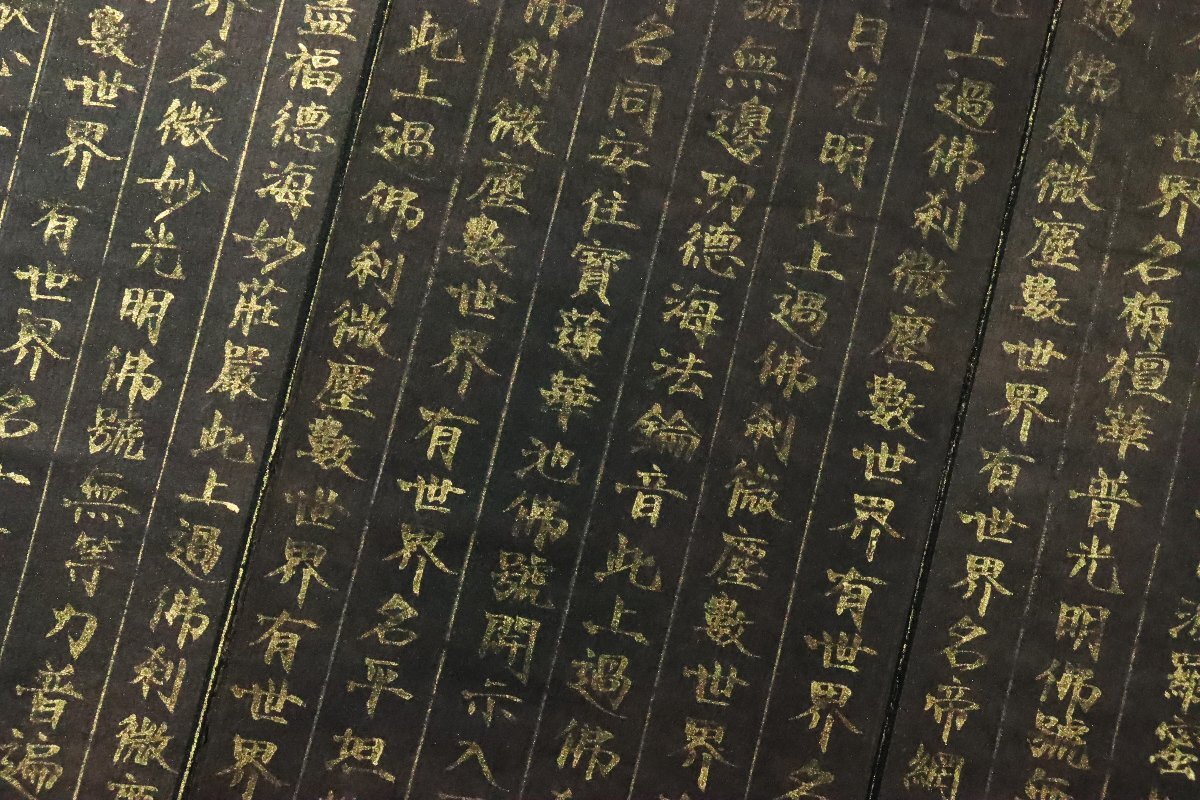 波羅蜜
世界名栴檀華普光明佛號無
過佛刹微塵數世界有世界名帝網
上過佛刹微塵數世界有世界名
日光明此上過佛刹微塵數世界
號無邊功德海法輪音此上過佛
名同安住寶蓮華池佛號開示入
佛刹微塵數世界有世界名平坦
此上過佛刹微塵數世界有世界
盡福德海妙莊嚴此上過佛刹微塵
界名微妙光明佛號無等力普遍
數世界有世界名